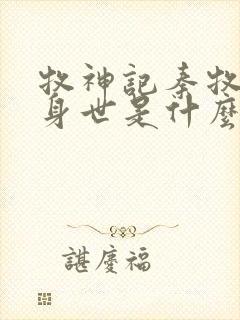 牧神記秦牧
身世是什麼
諶慶福